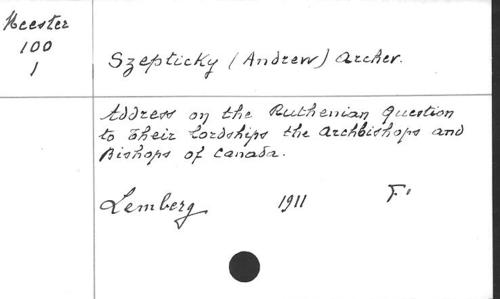 100
1
Szepticky (Andrew) Archev.
Address on the Ruthenian Question
to Their Lordships the Archbishops and
Bishops of Canada.
Lemberg 1911 F'